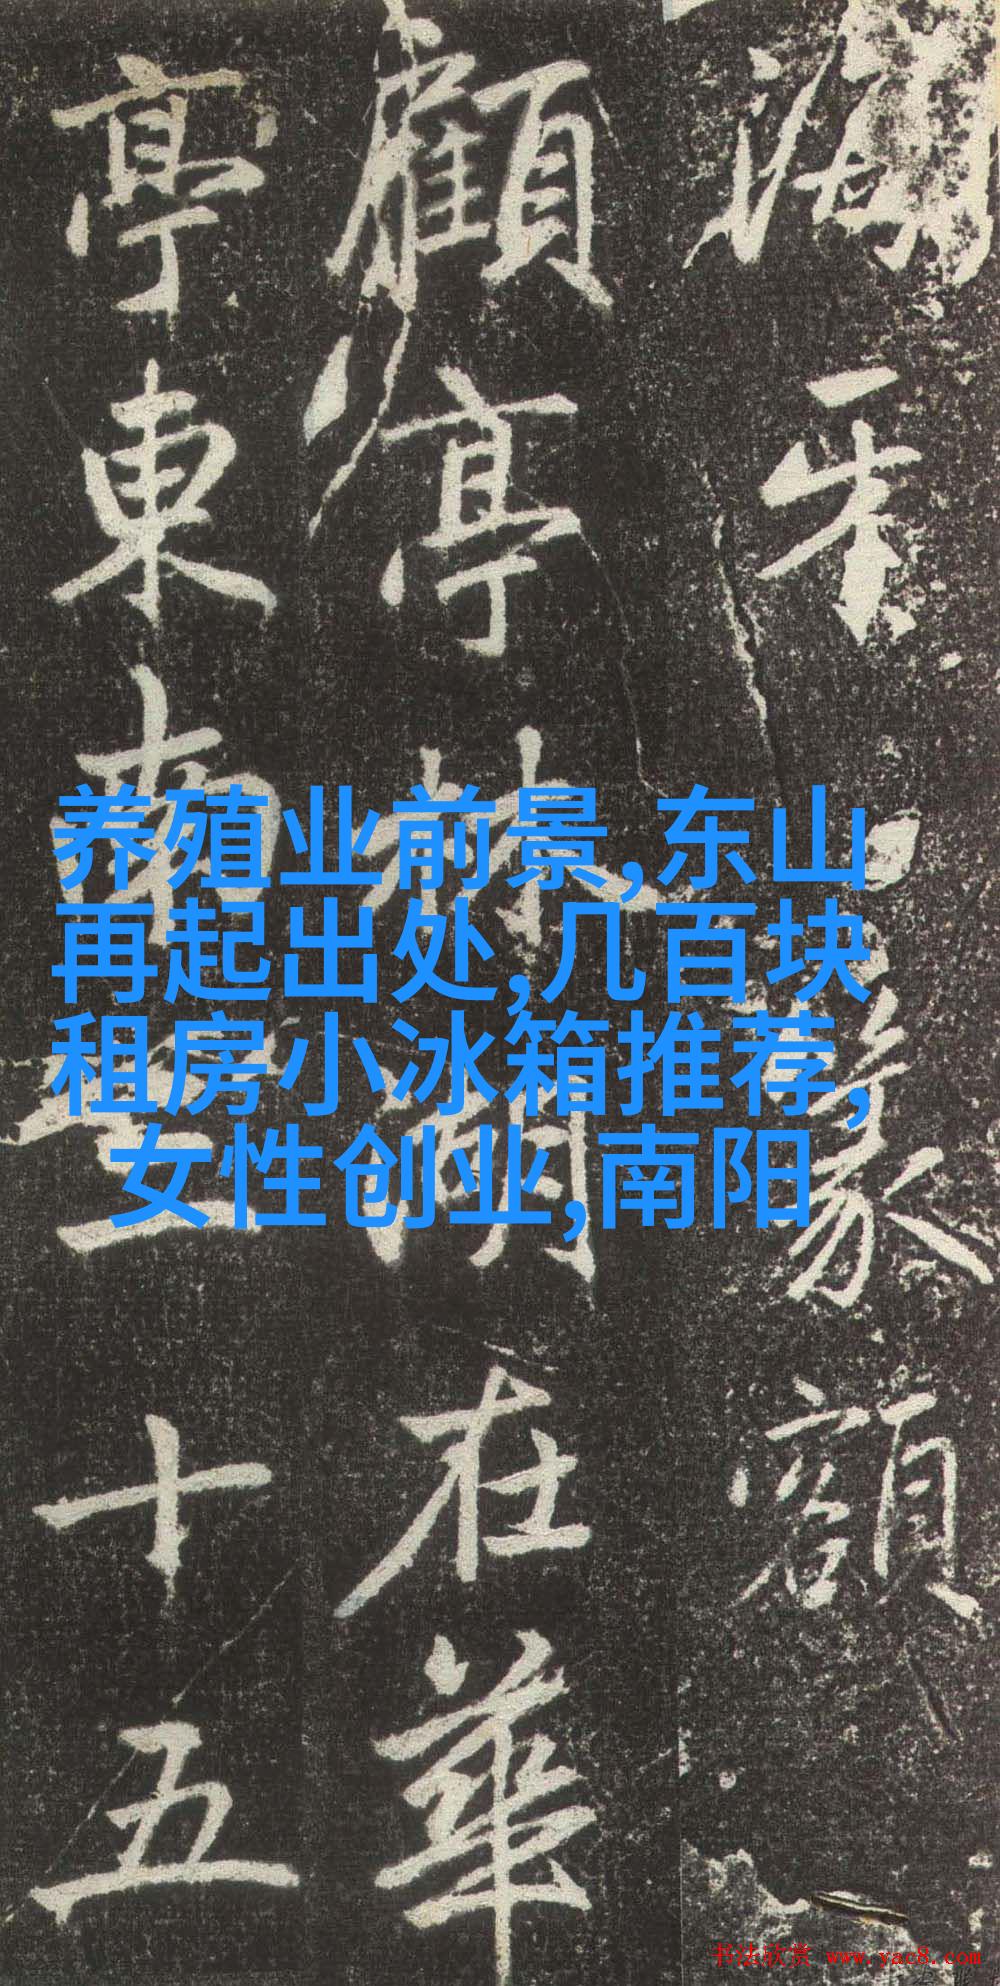 篆額
顧亭林湖在華
亭東南三十五
养殖业前景,东山
再起出处,几百块
租房小冰箱推荐,
女性创业,南阳
书法欣赏 www.yac8.com